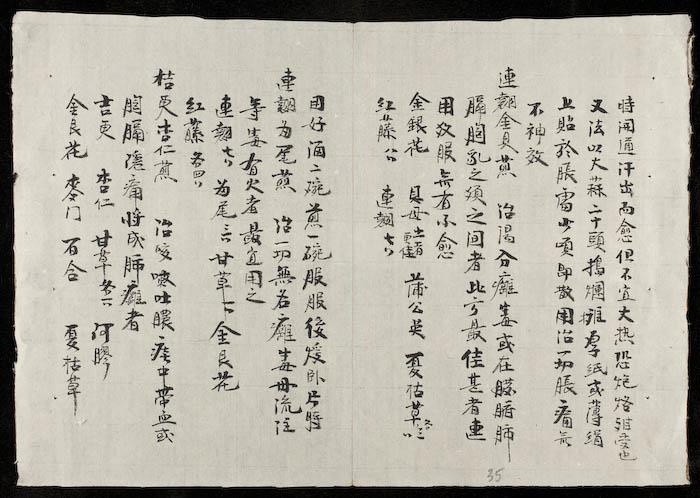 時開通汗出而愈但不宜大熱恐炮烙難受也
又法以大蒜二十頭搗爛攤厚紙或薄絹
上貼於脹處少頃即散用治一切脹痛無
不神效
連翹金貝煎 治陽分癰毒或在臟腑肺
膈胸乳之須之间者此方最佳甚者連
用数服無有不愈
金銀花 貝母土者更佳 蒲公英 夏枯草各三
紅藤八〻 連翹七〻
用好酒二碗煎一碗服服後煖卧片時
連翹為尾煎 治一切無名癰毒毋流注
等毒有火者最宜用之
連翹七〻 為尾三〻 甘草一〻 金艮花
紅藤各四〻
桔更杏仁煎 治咳嗽吐膿痰中帶血或
胸膈隱痛將成肺癰者
吉更 杏仁 甘草各一〻 阿膠
金艮花 麥门 百合 夏枯草
35